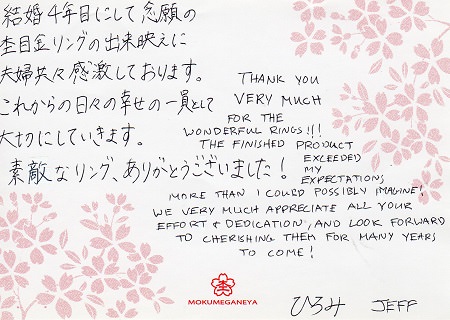 結婚4年目にして念願の
杢目金リングの出来映えに
夫婦共々感激しております。
これからの日々の幸せの一員として
大切にしていきます。
素敵なリング、ありがとうございました！
THANK YOU
VERY MUCH
FOR THE
WONDERFUL RINGS!!!
THE FINISHED PRODUCT
EXCEEDED
MY
EXPECTATIONS
MORE THAN I COULD POSSIBLY IMAGINE!
WE VERY MUCH APPRECIATE ALL YOUR
EFFORT & DEDICATION, AND LOOK FORWARD
TO CHERISHING THEM FOR MANY YEARS
TO COME!
杢
MOKUMEGANEYA
ひろみ JEFF